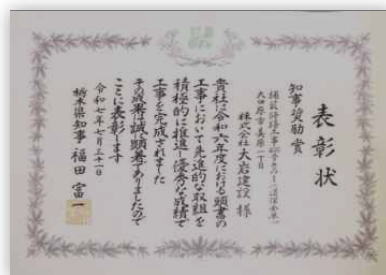 表彰状
知事奨励賞
大田原市美原一丁目
株式会社大岩建設 様
貴社は令和六年度における頭書の
工事において先進的な取組を
積極的に推進し優秀な成績で
工事を完成されました
その成果は誠に顕著でありましたので
ここに表彰します
令和七年七月三十一日
栃木県知事 福田富一